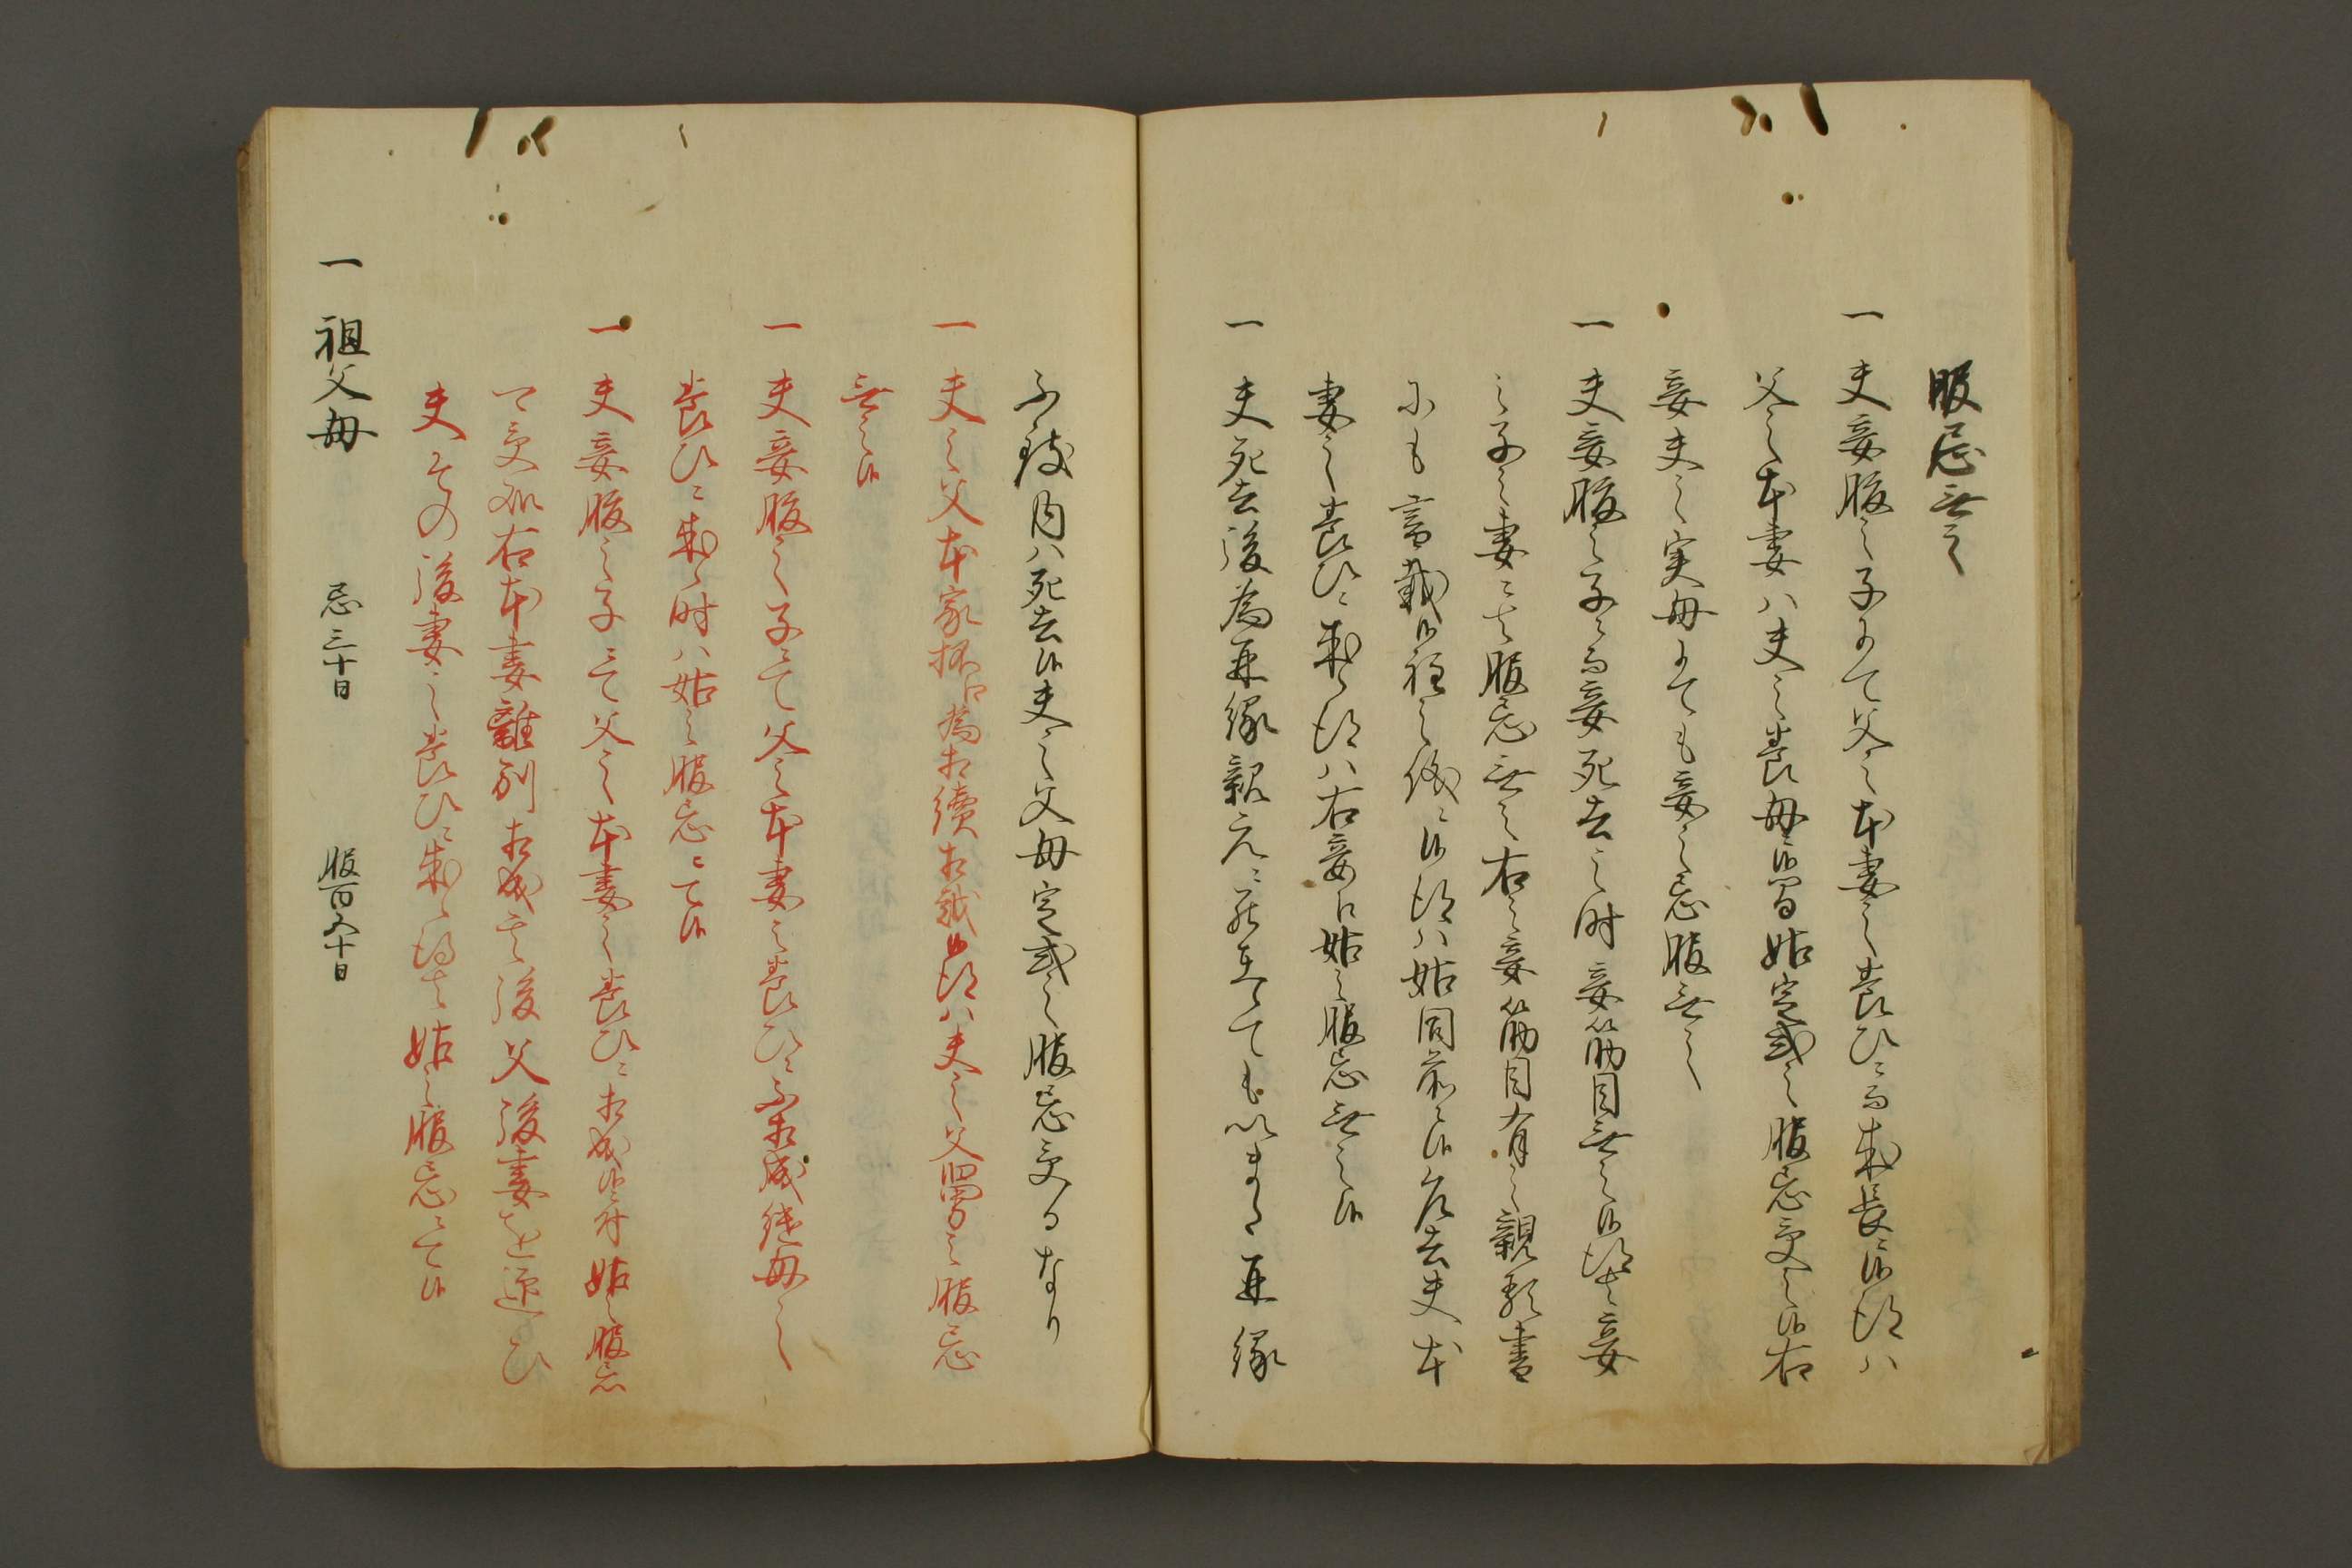 服忌無之
一 夫妾腹之子にて父之本妻之養ひニ而成長ニ候得ハ
父之本妻ハ夫之養母ニ候間姑定式之服忌受之候右
妾夫之実母にても妾之忌服無之
一 夫妾腹之子ニ而妾死去之時妾筋目無之候得共妾
之子之妻ニ者服忌無之右之妾筋目有之親類書
にも書載候程之儀ニ候得ハ姑同前ニ候乍去夫本
妻之養ひニ成候得ハ右妾ハ姑之服忌無之候
一 夫死去後為再縁親元ニ罷在ても いまた再縁
不致内ハ死去候夫之父母定式之服忌受るなり
一 夫之父本家 為相続相越候得ハ夫之父舅之服忌
無之候
一 夫妾腹之子ニて父之本妻之養ひニ不相成継母之
養ひニ成候時ハ姑之服忌ニて候
一 夫妾腹之子ニて父之本妻之養ひニ相成候付姑之服忌
可受処右本妻離別相成其後父後妻を迎ひ
夫その後妻之養ひニ成候得者姑之服忌ニて候
一 祖父母 忌三十日 服百五十日